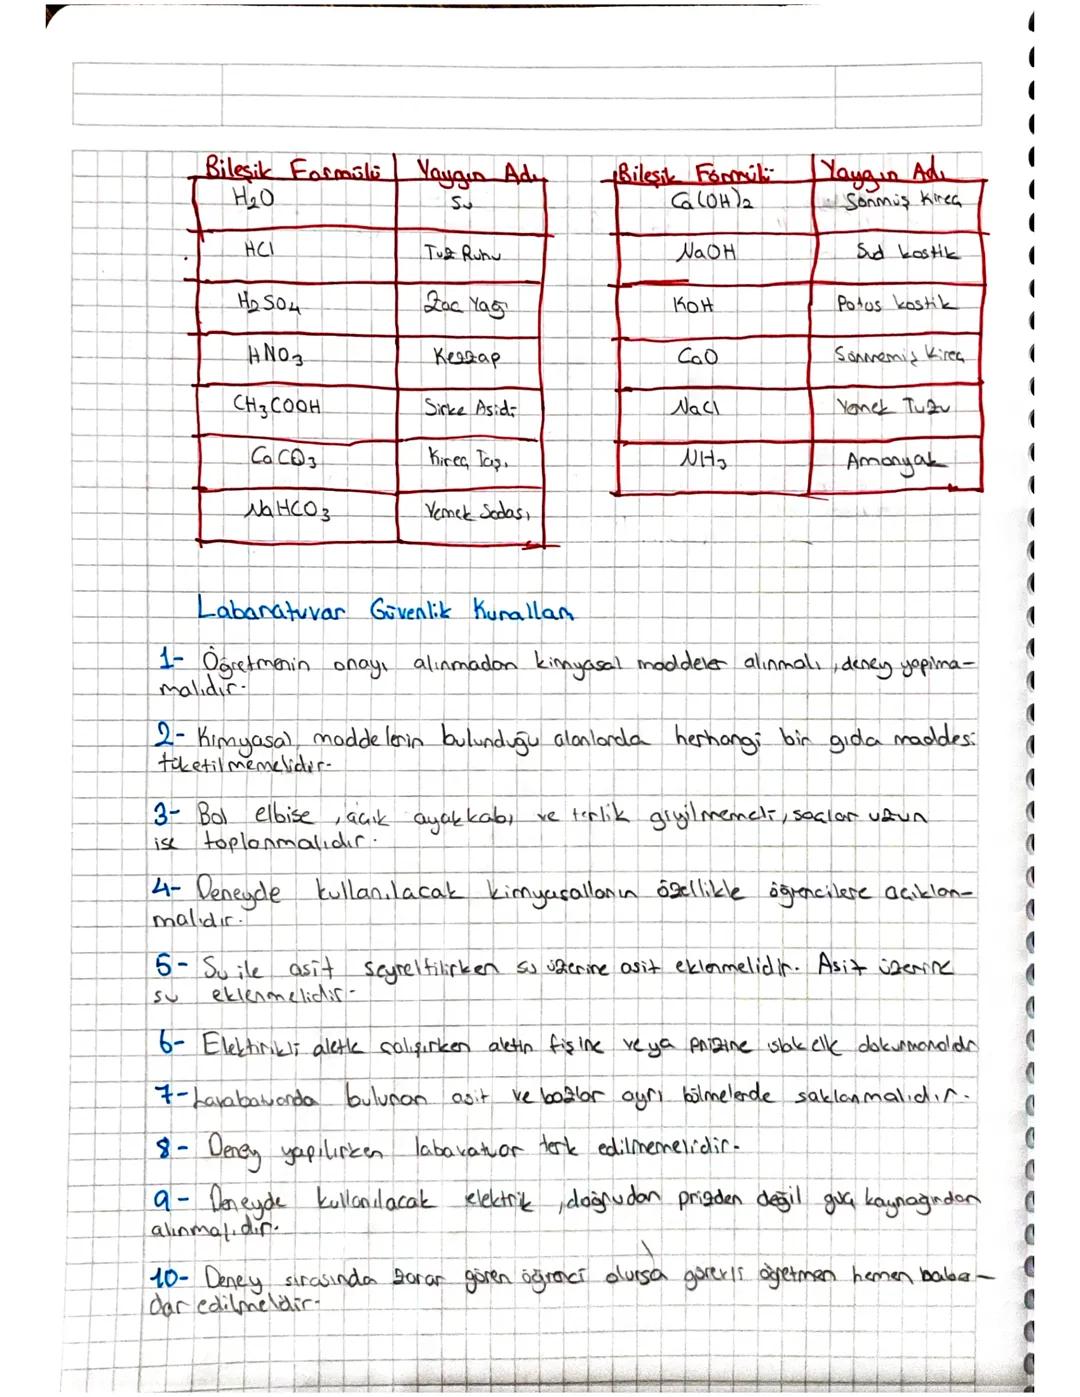 Bileşik Formülü Yaygın Adı
H₂O Su
HCl Tuz Ruhu
H₂SO₄ Zaç Yağı
HNO₃ Kezzap
CH₃COOH Sirke Asidi
CaCO₃ Kireç Taşı
NaHCO₃ Yemek Sodası
Bileşik Formülü Yaygın Adı
Ca(OH)₂ Sönmüş Kireç
NaOH Sud kostik
KOH Potas kostik
CaO Sönmemiş Kireç
NaCl Yemek Tuzu
NH₃ Amonyak
Labaratuvar Güvenlik Kuralları
1- Öğretmenin onayı alınmadan kimyasal maddeler alınmalı, deney yapılma-
malıdır.
2- Kimyasal maddelerin bulunduğu alanlarda herhangi bir gıda maddesi
tüketilmemelidir.
3- Bol elbise, açık ayakkabı ve terlik giyilmemeli, saçlar uzun
ise toplanmalıdır.
4- Deneyde kullanılacak kimyasalların özellikle öğrencilere açıklan-
malıdır.
5- Su ile asit seyreltilirken su üzerine asit eklenmelidir. Asit üzerine
su eklenmelidir.
6- Elektirikli aletle çalışırken aletin fişine veya prizine ıslak elle dokunmamalıdır
7- bulunan asit ve bazlar ayrı bölmelerde saklanmalıdır.
8- Deney yapılırken labavatuar terk edilmemelidir.
9- Deneyde kullanılacak elektrik, doğrudan prizden değil güç kaynağından
alınmalıdır.
10- Deney sırasında zarar gören öğrenci olursa görevli öğretmen hemen haber-
dar edilmeldir.